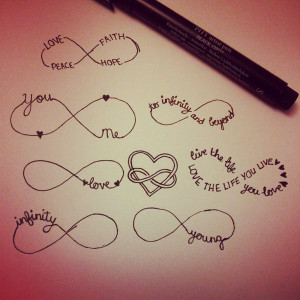 LOVE FAITH
PEACE HOPE
You
Me
to infinity and beyond
love
live the life
LOVE THE LIFE YOU LIVE
you love
infinity
young